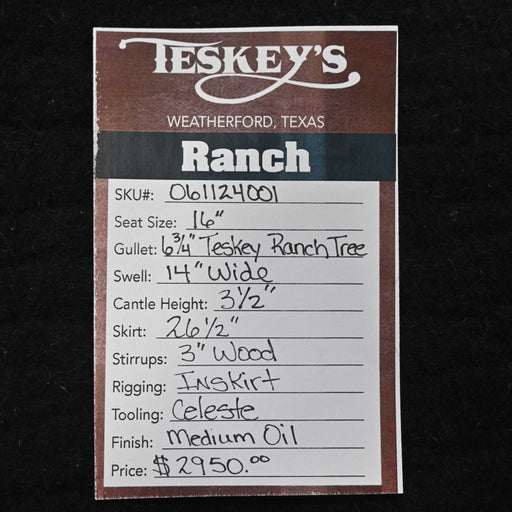 TESKEY'S
WEATHERFORD, TEXAS
Ranch
SKU#: 061124001
Seat Size: 16"
Gullet: 6 3/4" Teskey Ranch Tree
Swell: 14" Wide
Cantle Height: 3 1/2"
Skirt: 26 1/2"
Stirrups: 3" Wood
Rigging: Inskirt
Tooling: Celeste
Finish: Medium Oil
Price: $2950.00